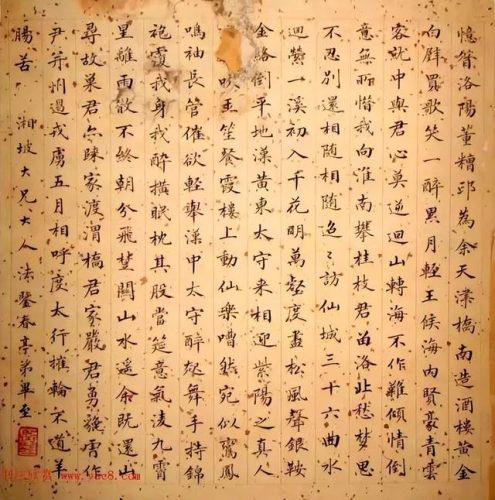 憶昔洛陽董糟邱為余天津橋南造酒樓黃金
白璧買歌笑一醉累月輕王侯海內賢豪青雲
客就中與君心莫逆迴山轉海不作難傾情倒
意無所惜我向淮南攀桂枝君留洛北愁夢思
不忍別還相隨相隨迢々訪仙城三十六曲水
迴縈一溪初入千花明萬壑度盡松風聲銀鞍
金絡倒平地漢東太守來相迎紫陽之真人
吹玉笙餐霞樓上動仙樂嘈然宛似鸞鳳
鳴袖長管催欲輕舉漢中太守醉起舞手持錦
袍覆我身我醉橫眠枕其股當筵意氣凌九霄
星離雨散不終朝分飛楚關山水遙余既還山
尋故巢君亦歸家渡渭橋君家嚴君勇貔虎作
尹并州遏戎虜五月相呼度太行摧輪不道羊
腸苦 湘坡大兄大人法鑒春亭弟畢至